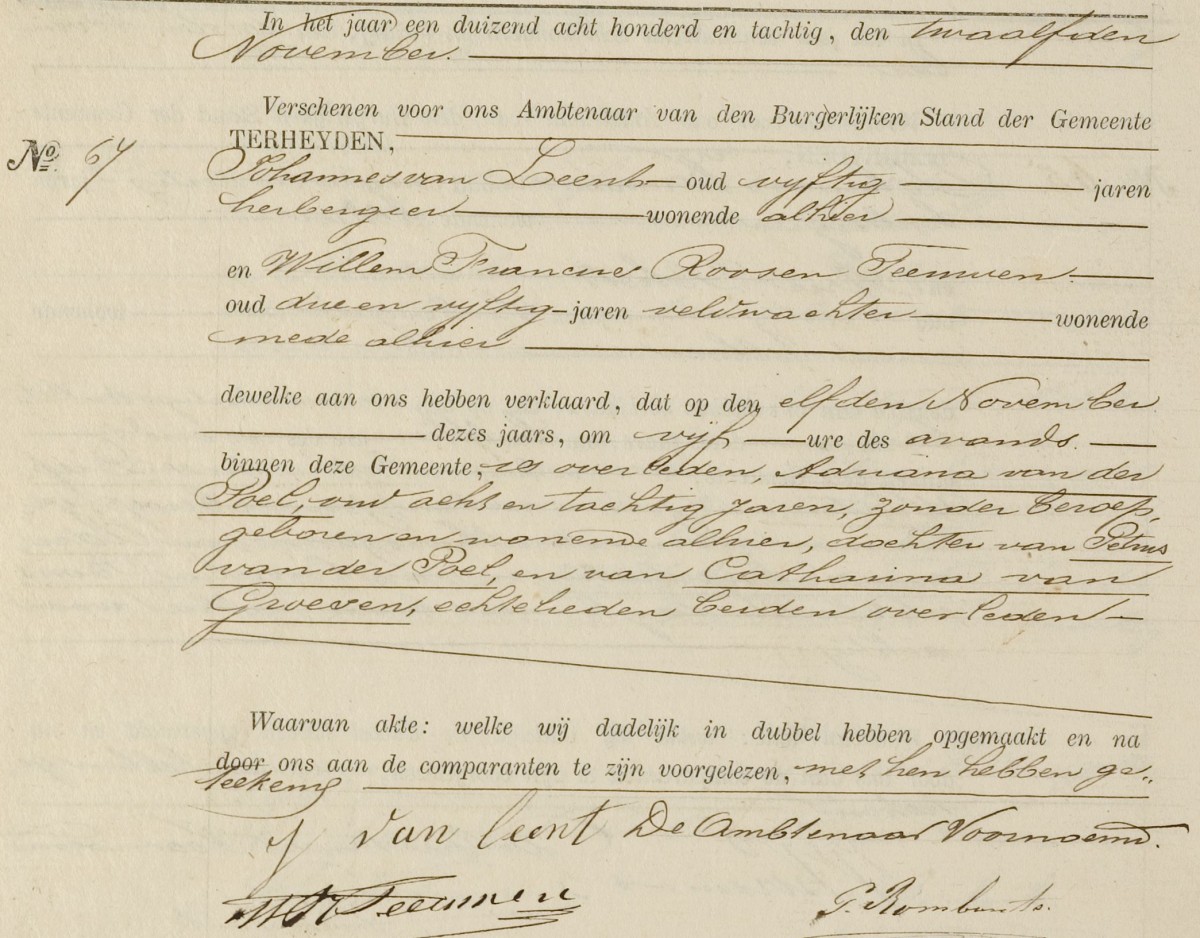 In het jaar een duizend acht honderd en tachtig, den twaalfden
November.
Verschenen voor ons Ambtenaar van den Burgerlijken Stand der Gemeente
TERHEYDEN,
No. 67
Johannes van Leent oud vijftig jaren
herbergier wonende alhier
en Willem Francus Roosen Teeuwen
oud drie en vijftig jaren veldwachter wonende
mede alhier
dewelke aan ons hebben verklaard, dat op den elfden November
dezes jaars, om vijf ure des avonds
binnen deze Gemeente, is overleden, Adriana van der
Poel, oud acht en tachtig jaren, zonder beroep,
geboren en wonende alhier, dochter van Petrus
van der Poel, en van Catharina van
Groeven, echtelieden beiden overleden
Waarvan akte: welke wij dadelijk in dubbel hebben opgemaakt en na
door ons aan de comparanten te zijn voorgelezen, met hen hebben ge„
teekend
J van leent De Ambtenaar Voornoemd.
WFR Teeuwen P. Rombouts.